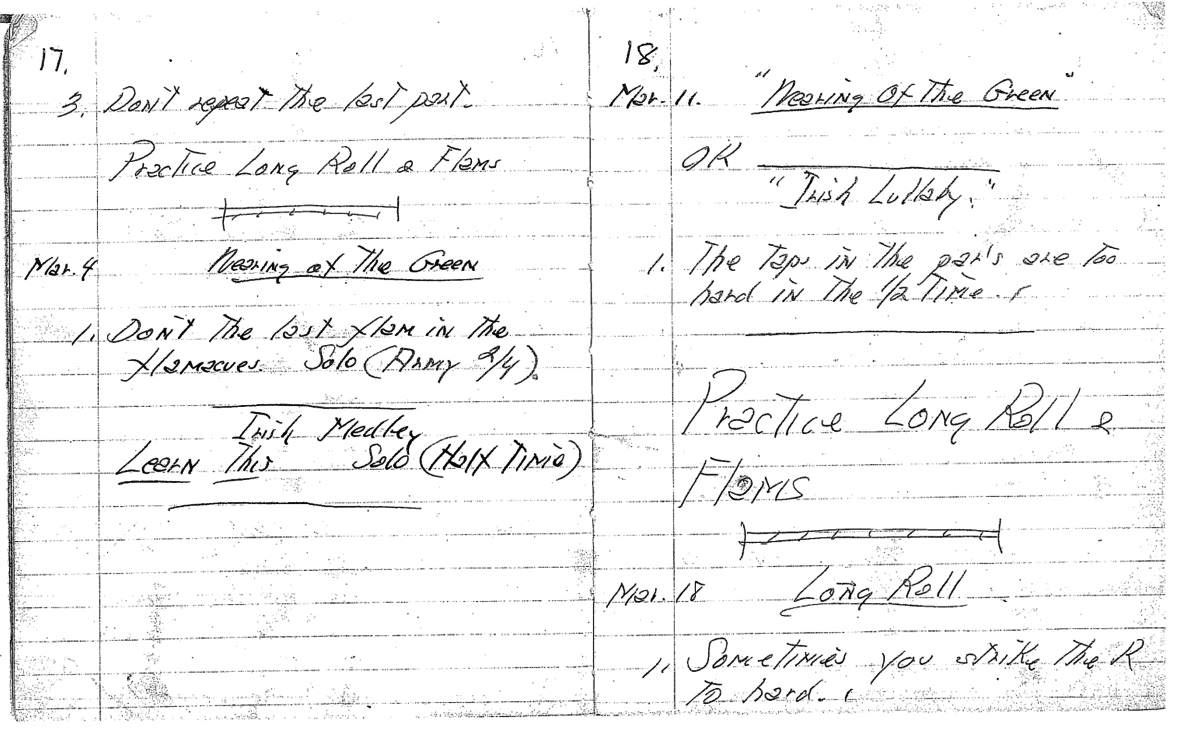 17.
3. Don't repeat The last part.
Practice Long Roll & Flams
Mar. 4 Wearing of The Green
1. Don't The last flam in The
flamacues. Solo (Army 2/4).
Irish Medley
Learn This Solo (Half Time)
18.
Mar. 11. "Wearing Of The Green"
OK
"Irish Lullaby."
1. The Taps in The par's are Too
hard in The 1/2 Time.
Practice Long Roll &
Flams
Mar. 18 Long Roll
1. Sometimes you strike The R
To hard.